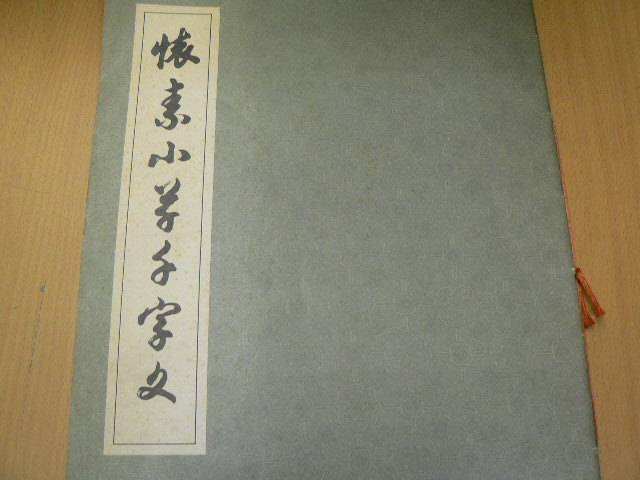 懐素小草千字文